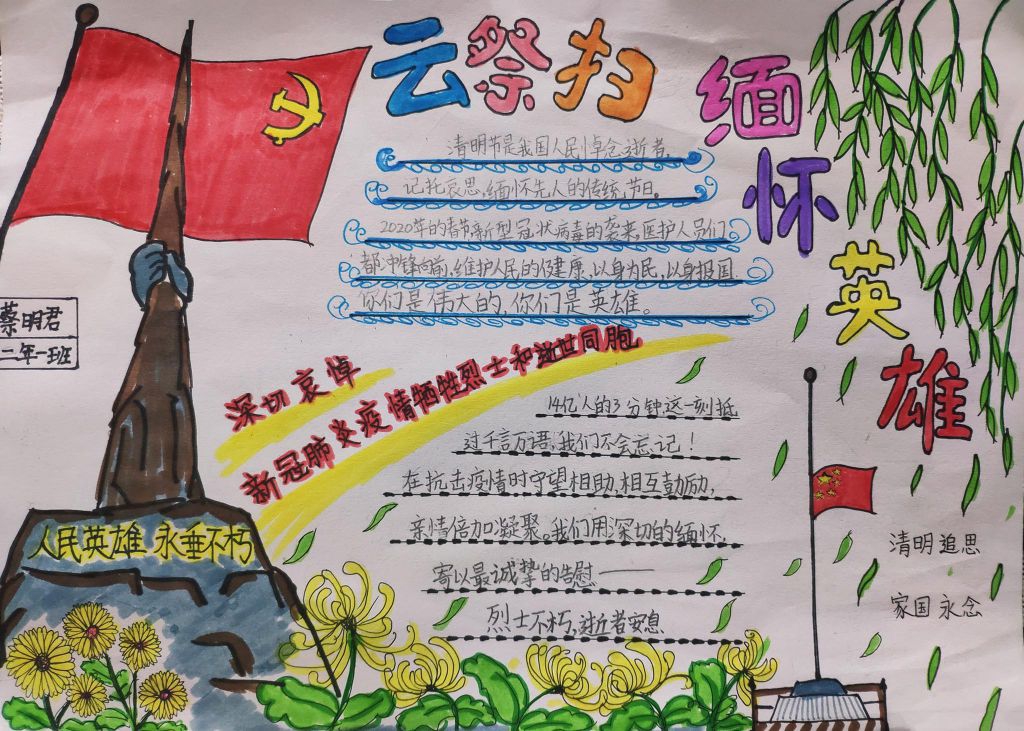 云祭扫
缅怀英雄
清明节是我国人民悼念逝者,
记托哀思,缅怀先人的传统节日。
2020年的春节新型冠状病毒的袭来,医护人员们
都冲锋向前,维护人民的健康,以身为民,以身报国.
你们是伟大的,你们是英雄。
蔡明君
二年一班
深切哀悼
新冠肺炎疫情牺牲烈士和逝世同胞
14亿人的3分钟这一刻抵
过千言万语,我们不会忘记!
在抗击疫情时守望相助,相互鼓励,
亲情倍加凝聚。我们用深切的缅怀,
寄以最诚挚的告慰——
烈士不朽,逝者安息
人民英雄 永垂不朽
清明追思
家国永念